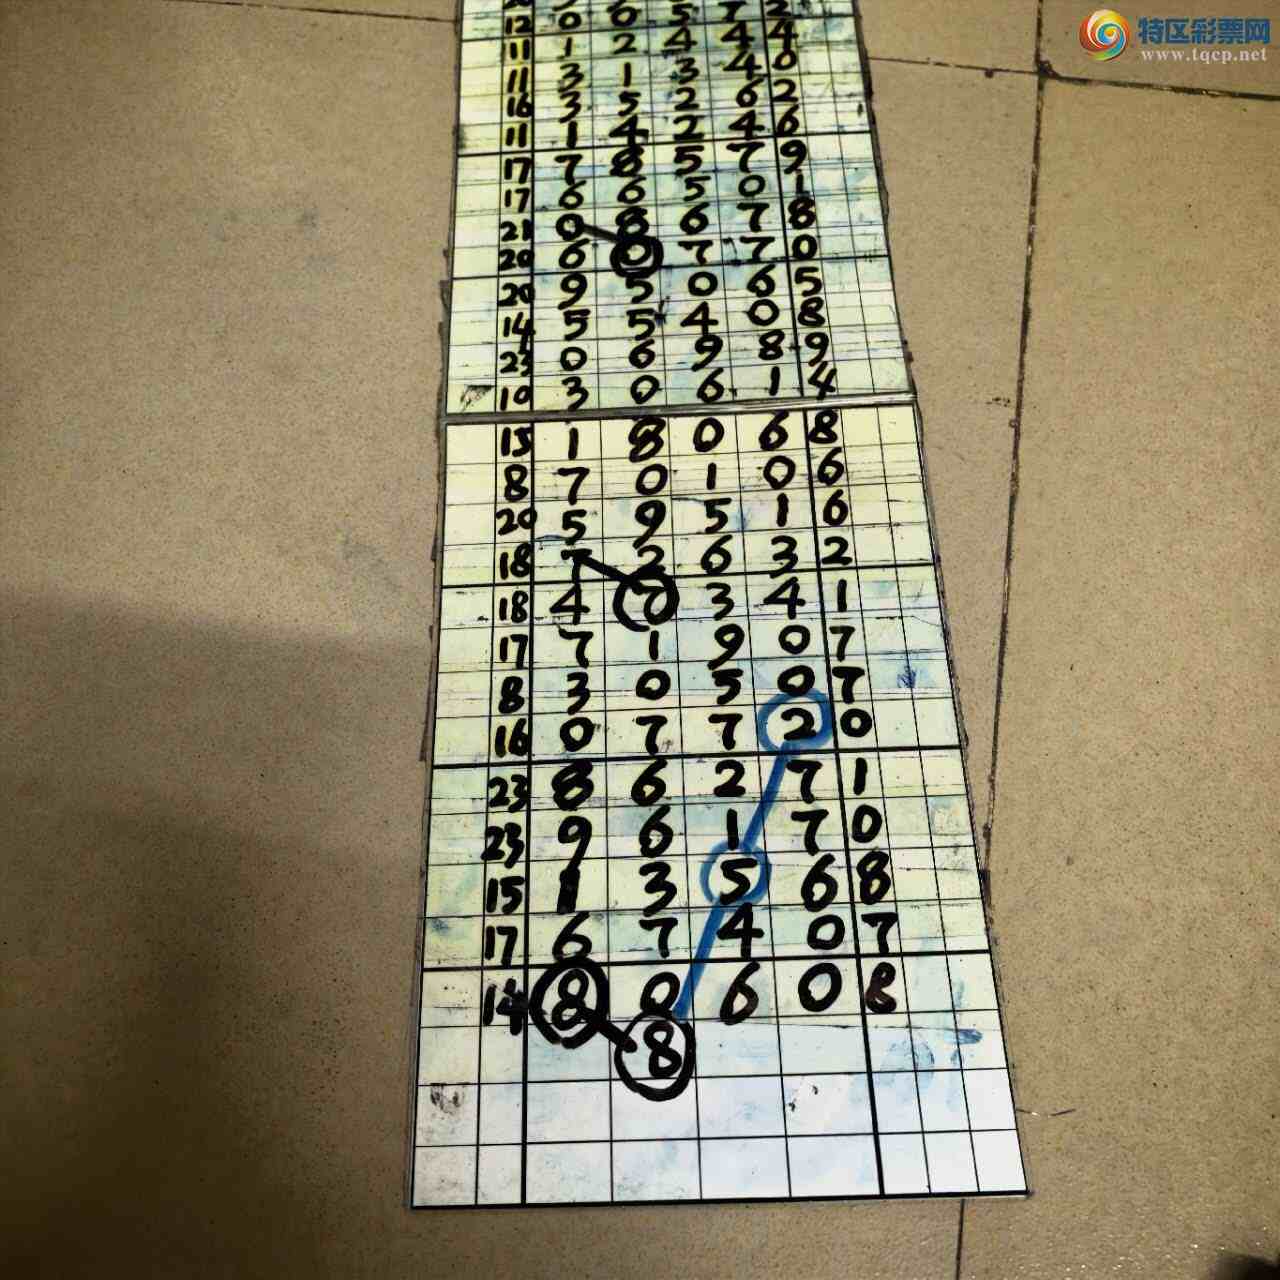 特区彩票网
www.tqcp.net
12 0 0 5 7 2
11 1 2 4 4 4
11 3 1 3 4 0
16 3 5 2 6 2
11 1 4 2 4 6
17 7 8 5 7 9
17 6 6 5 0 1
21 0 8 6 7 8
20 6 0 7 7 0
20 9 5 0 6 5
14 5 5 4 0 8
23 0 6 9 8 9
10 3 0 6 1 4
15 1 8 0 6 8
8 7 0 1 0 6
20 5 9 5 1 6
18 7 2 6 3 2
18 4 7 3 4 1
17 7 1 9 0 7
8 3 0 5 0 7
16 0 7 7 2 0
23 8 6 2 7 1
23 9 6 1 7 0
15 1 3 5 6 8
17 6 7 4 0 7
14 8 0 6 0 8
8